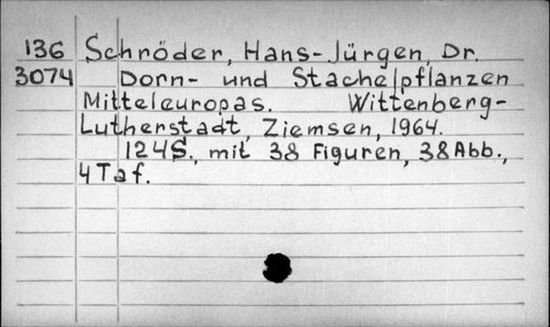 136 Schröder, Hans-Jürgen, Dr.
3074 Dorn- und Stachelpflanzen
Mitteleuropas. Wittenberg-
Lutherstadt, Ziemsen, 1964.
124S., mit 38 Figuren, 38 Abb.,
4 Taf.